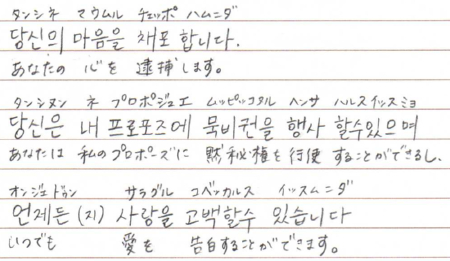 タンシネ マウムル チェッポ ハムニダ
당신의 마음을 채포 합니다.
あなたの 心を 逮捕します。
タンシヌン ネ プロポジュエ ムッピッコヌル ヘンサ ハルスイッスミョ
당신은 내 프로포즈에 묵비권을 행사 할수있으며
あなたは 私のプロポーズに 黙秘権を行使 することができるし、
オンジェドゥン サラグル コベッカルス イッスムニダ
언제든(지) 사랑을 고백할수 있습니다
いつでも 愛を 告白することができます。